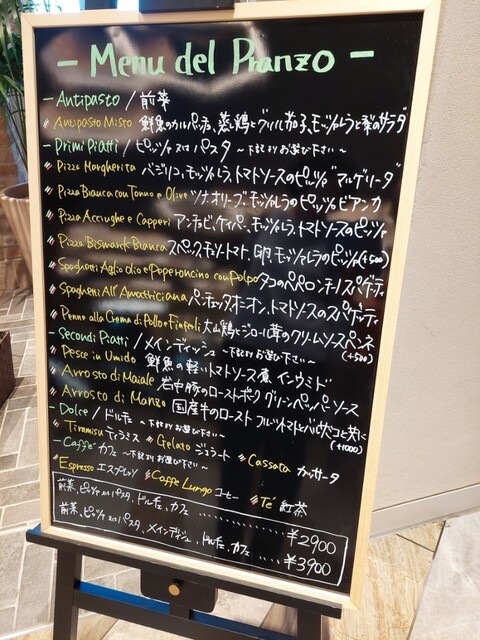 - Menu del Pranzo -
- Antipasto / 前菜
Antipasto Misto 鮮魚のカルパッチョ、蒸し鶏とグリル茄子、モッツァレラと梨のサラダ
- Primi Piatti / ピッツァ又はパスタ ~下記よりお選び下さい~
Pizza Margherita バジリコ、モッツァレラ、トマトソースのピッツァ "マルゲリータ"
Pizza Bianca con Tonno e Olive ツナ、オリーブ、モッツァレラのピッツァ ビアンカ
Pizza Acciughe e Capperi アンチョビ、ケイパー、モッツァレラ、トマトソースのピッツァ
Pizza Bismarck Bianca スペック、モッツァレラ、卵、モッツァレラのピッツァ (+500)
Spaghetti Aglio olio e Peperoncino con Polpo タコのペペロンチーノスパゲティ
Spaghetti All' Amatriciana パンチェッタ、オニオン、トマトソースのスパゲティ
Penne alla Crema di Pollo e Finferli 大山鶏とジロール茸のクリームソースペンネ
(+500)
- Secondi Piatti / メインディッシュ ~下記よりお選び下さい~
Pesce in Umido 鮮魚の軽いトマトソース煮 インウミド
Arrosto di Maiale 岩中豚のローストポーク グリーンペッパーソース
Arrosto di Manzo 国産牛のロースト フルーツトマトとバルサミコと共に
(+1000)
- Dolce / ドルチェ ~下記よりお選び下さい~
Tiramisu ティラミス Gelato ジェラート Cassata カッサータ
- Caffé カフェ ~下記よりお選び下さい~
Espresso エスプレッソ Caffe Lungo コーヒー Té 紅茶
前菜、ピッツァ又はパスタ、ドルチェ、カフェ ..... ¥2900
前菜、ピッツァ又はパスタ、メインディッシュ、ドルチェ、カフェ ..... ¥3900